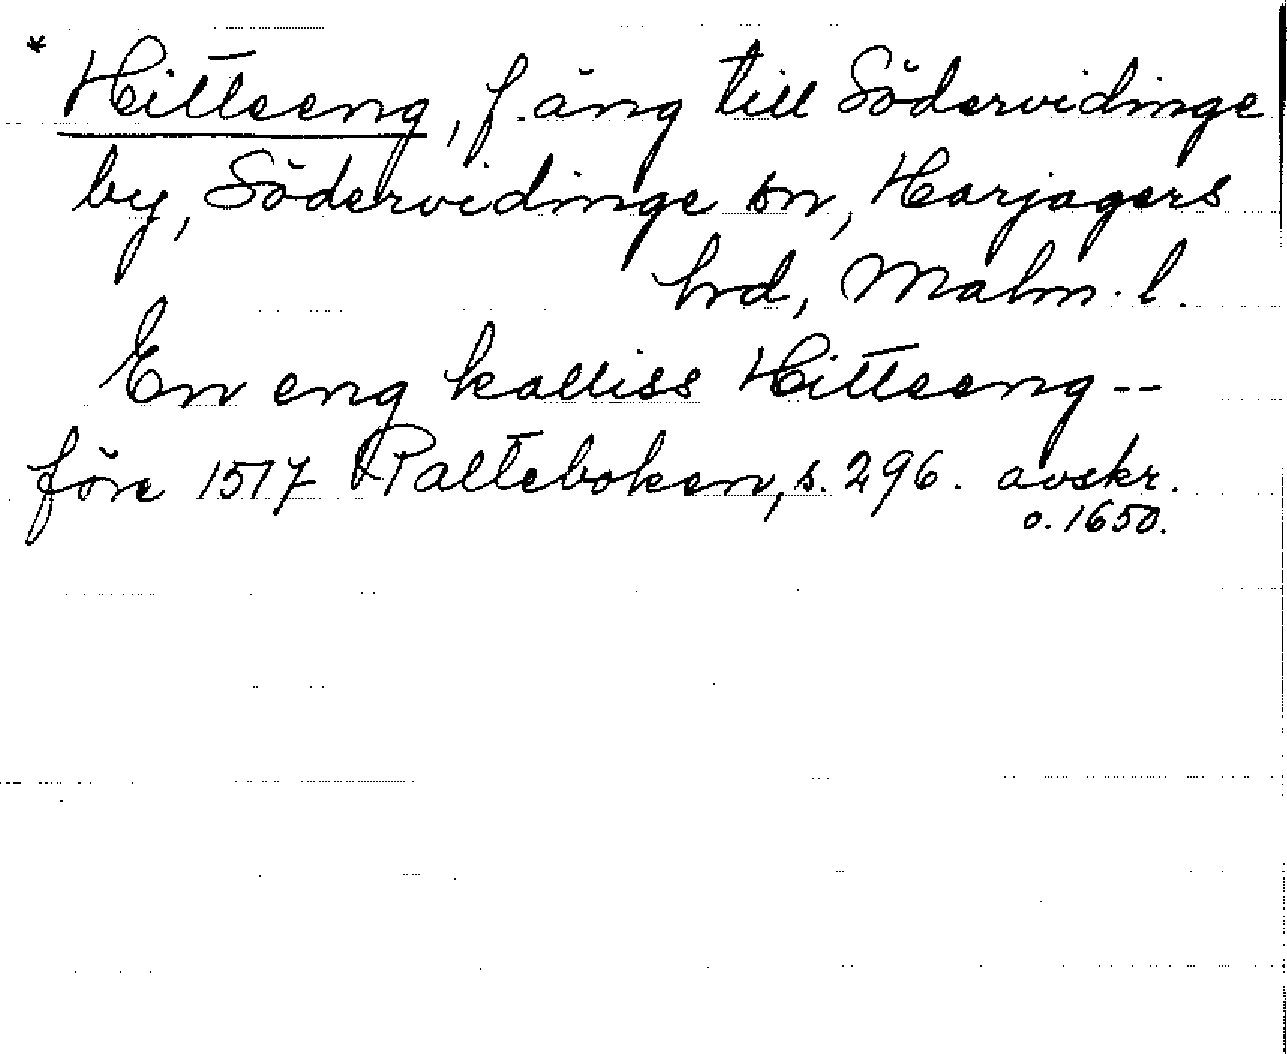 * Hitteeng, f. äng till Södervidinge
by, Södervidinge sn, Harjagers
hrd, Malm. l.
En eng kalliss Hitteeng --
före 1517 Palteboken, s. 296. avskr.
o. 1650.